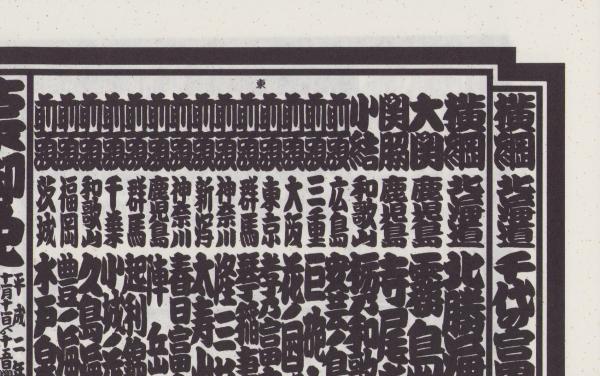 東
横綱 北海道 千代富
横綱 北海道 北勝海
大関 鹿児島 霧島
関脇 鹿児島 寺尾
小結 和歌山 栃乃和歌
前頭 広島 安芸ノ島
前頭 三重 巨砲
前頭 大阪 花ノ国
前頭 東京 孝乃富
前頭 群馬 琴稲妻
前頭 神奈川 隆三杉
前頭 新潟 太寿山
前頭 神奈川 春日富
前頭 鹿児島 陣岳
前頭 群馬 起利錦
前頭 千葉 小城ノ花
前頭 和歌山 久島海
前頭 福岡 豊ノ海
前頭 茨城 水戸泉
御免
平成二年